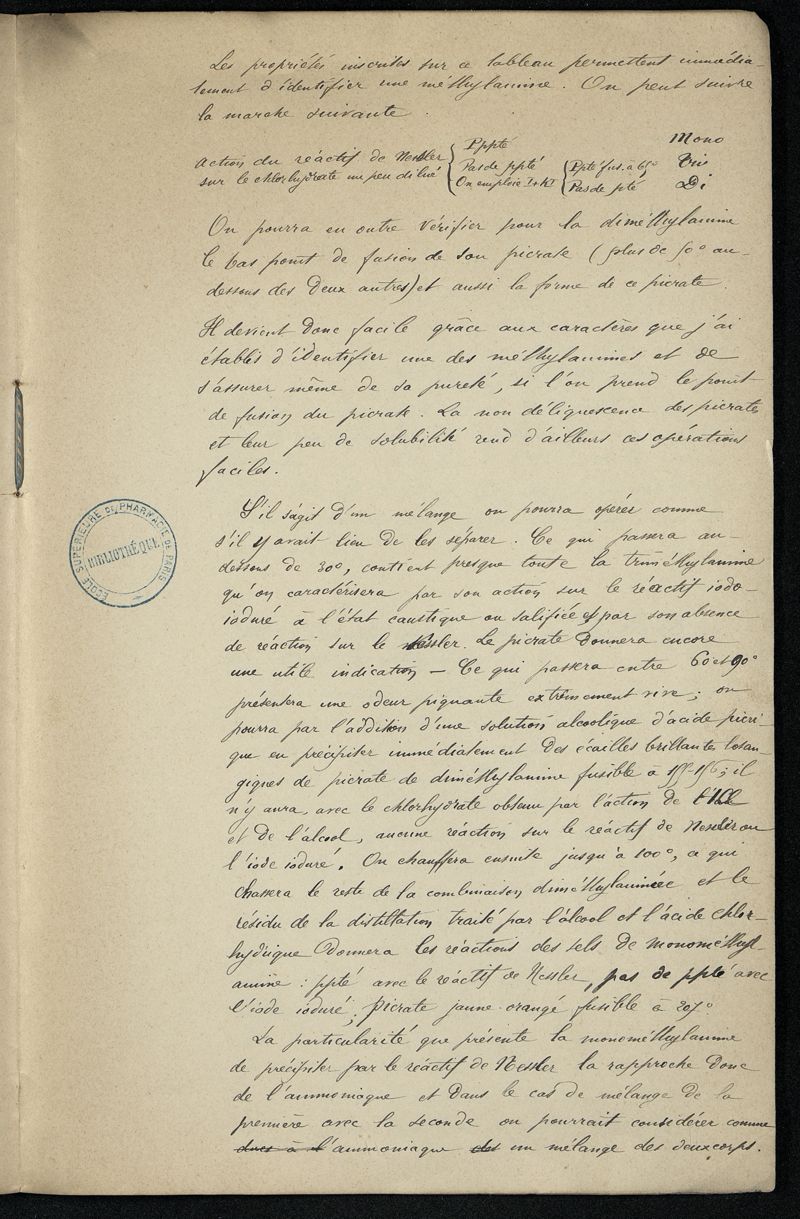 Les propriétés inscrites sur ce tableau permettent immédia-
tement d'identifier une méthylamine. On peut suivre
la marche suivante.
Action du réactif de Nessler
sur le chlorhydrate un peu dilué
Pppté
Pas de ppté
On emploie I+KI
Ppté fus. à 65°
Pas de pté
Mono
Tri
Di
On pourra en outre vérifier pour la diméthylamine
le bas point de fusion de son picrate (plus de 50° au-
dessous des deux autres) et aussi la forme de ce picrate.
Il devient donc facile grâce aux caractères que j'ai
établis d'identifier une des méthylamines et de
s'assurer même de sa pureté, si l'on prend le point
de fusion du picrate. La non déliquescence des picrates
et leur peu de solubilité rend d'ailleurs ces opérations
faciles.
S'il s'agit d'un mélange on pourra opérer comme
s'il y avait lieu de les séparer. Ce qui passera au-
dessous de 30°, contient presque toute la triméthylamine
qu'on caractérisera par son action sur le réactif iodo-
ioduré à l'état caustique ou salifiée et par son absence
de réaction sur le Nessler. Le picrate donnera encore
une utile indication — Ce qui passera entre 60 et 90°
présentera une odeur piquante extrêmement vive ; on
pourra par l'addition d'une solution alcoolique d'acide picri-
que en précipiter immédiatement des écailles brillantes losan-
giques de picrate de diméthylamine fusible à 155-156 ; il
n'y aura, avec le chlorhydrate obtenu par l'action de l'HCl
et de l'alcool, aucune réaction sur le réactif de Nessler ou
l'iode ioduré. On chauffera ensuite jusqu'à 100°, ce qui
chassera le reste de la combinaison diméthylaminée et le
résidu de la distillation traité par l'alcool et l'acide chlor-
hydrique donnera les réactions des sels de monométhyl-
amine : ppté avec le réactif de Nessler, pas de ppté avec
l'iode ioduré ; Picrate jaune-orangé fusible à 207°
La particularité que présente la monométhylamine
de précipiter par le réactif de Nessler la rapproche donc
de l'ammoniaque et dans le cas de mélange de la
première avec la seconde on pourrait considérer comme
dues à l'ammoniaque des un mélange des deux corps.
ÉCOLE SUPÉRIEURE DE PHARMACIE DE PARIS
BIBLIOTHÈQUE